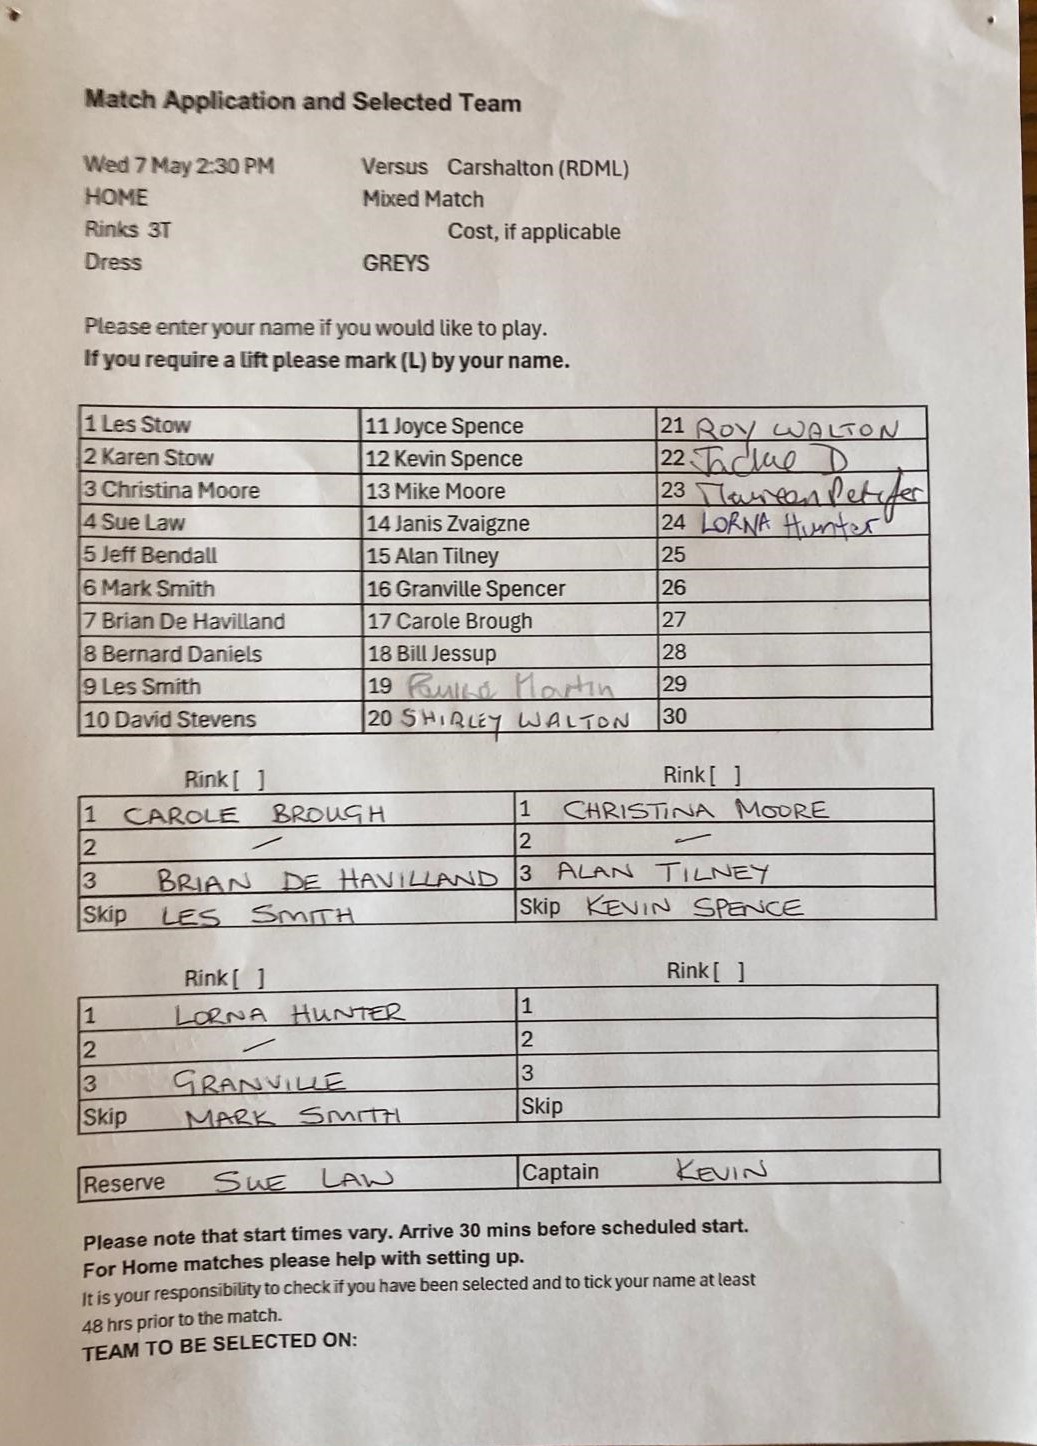 Match Application and Selected Team
Wed 7 May 2:30 PM Versus Carshalton (RDML)
HOME Mixed Match
Rinks 3T Cost, if applicable
Dress GREYS
Please enter your name if you would like to play.
If you require a lift please mark (L) by your name.
1 Les Stow 11 Joyce Spence 21 ROY WALTON
2 Karen Stow 12 Kevin Spence 22 Jackie D
3 Christina Moore 13 Mike Moore 23 Maureen
4 Sue Law 14 Janis Zvaigzne 24 LORNA Hunter
5 Jeff Bendall 15 Alan Tilney 25
6 Mark Smith 16 Granville Spencer 26
7 Brian De Havilland 17 Carole Brough 27
8 Bernard Daniels 18 Bill Jessup 28
9 Les Smith 19 Martin 29
10 David Stevens 20 SHIRLEY WALTON 30
Rink [ ] Rink [ ]
1 CAROLE BROUGH 1 CHRISTINA MOORE
2 — 2 —
3 BRIAN DE HAVILLAND 3 ALAN TILNEY
Skip LES SMITH Skip KEVIN SPENCE
Rink [ ] Rink [ ]
1 LORNA HUNTER 1
2 — 2
3 GRANVILLE 3
Skip MARK SMITH Skip
Reserve SUE LAW Captain KEVIN
Please note that start times vary. Arrive 30 mins before scheduled start.
For Home matches please help with setting up.
It is your responsibility to check if you have been selected and to tick your name at least
48 hrs prior to the match.
TEAM TO BE SELECTED ON: